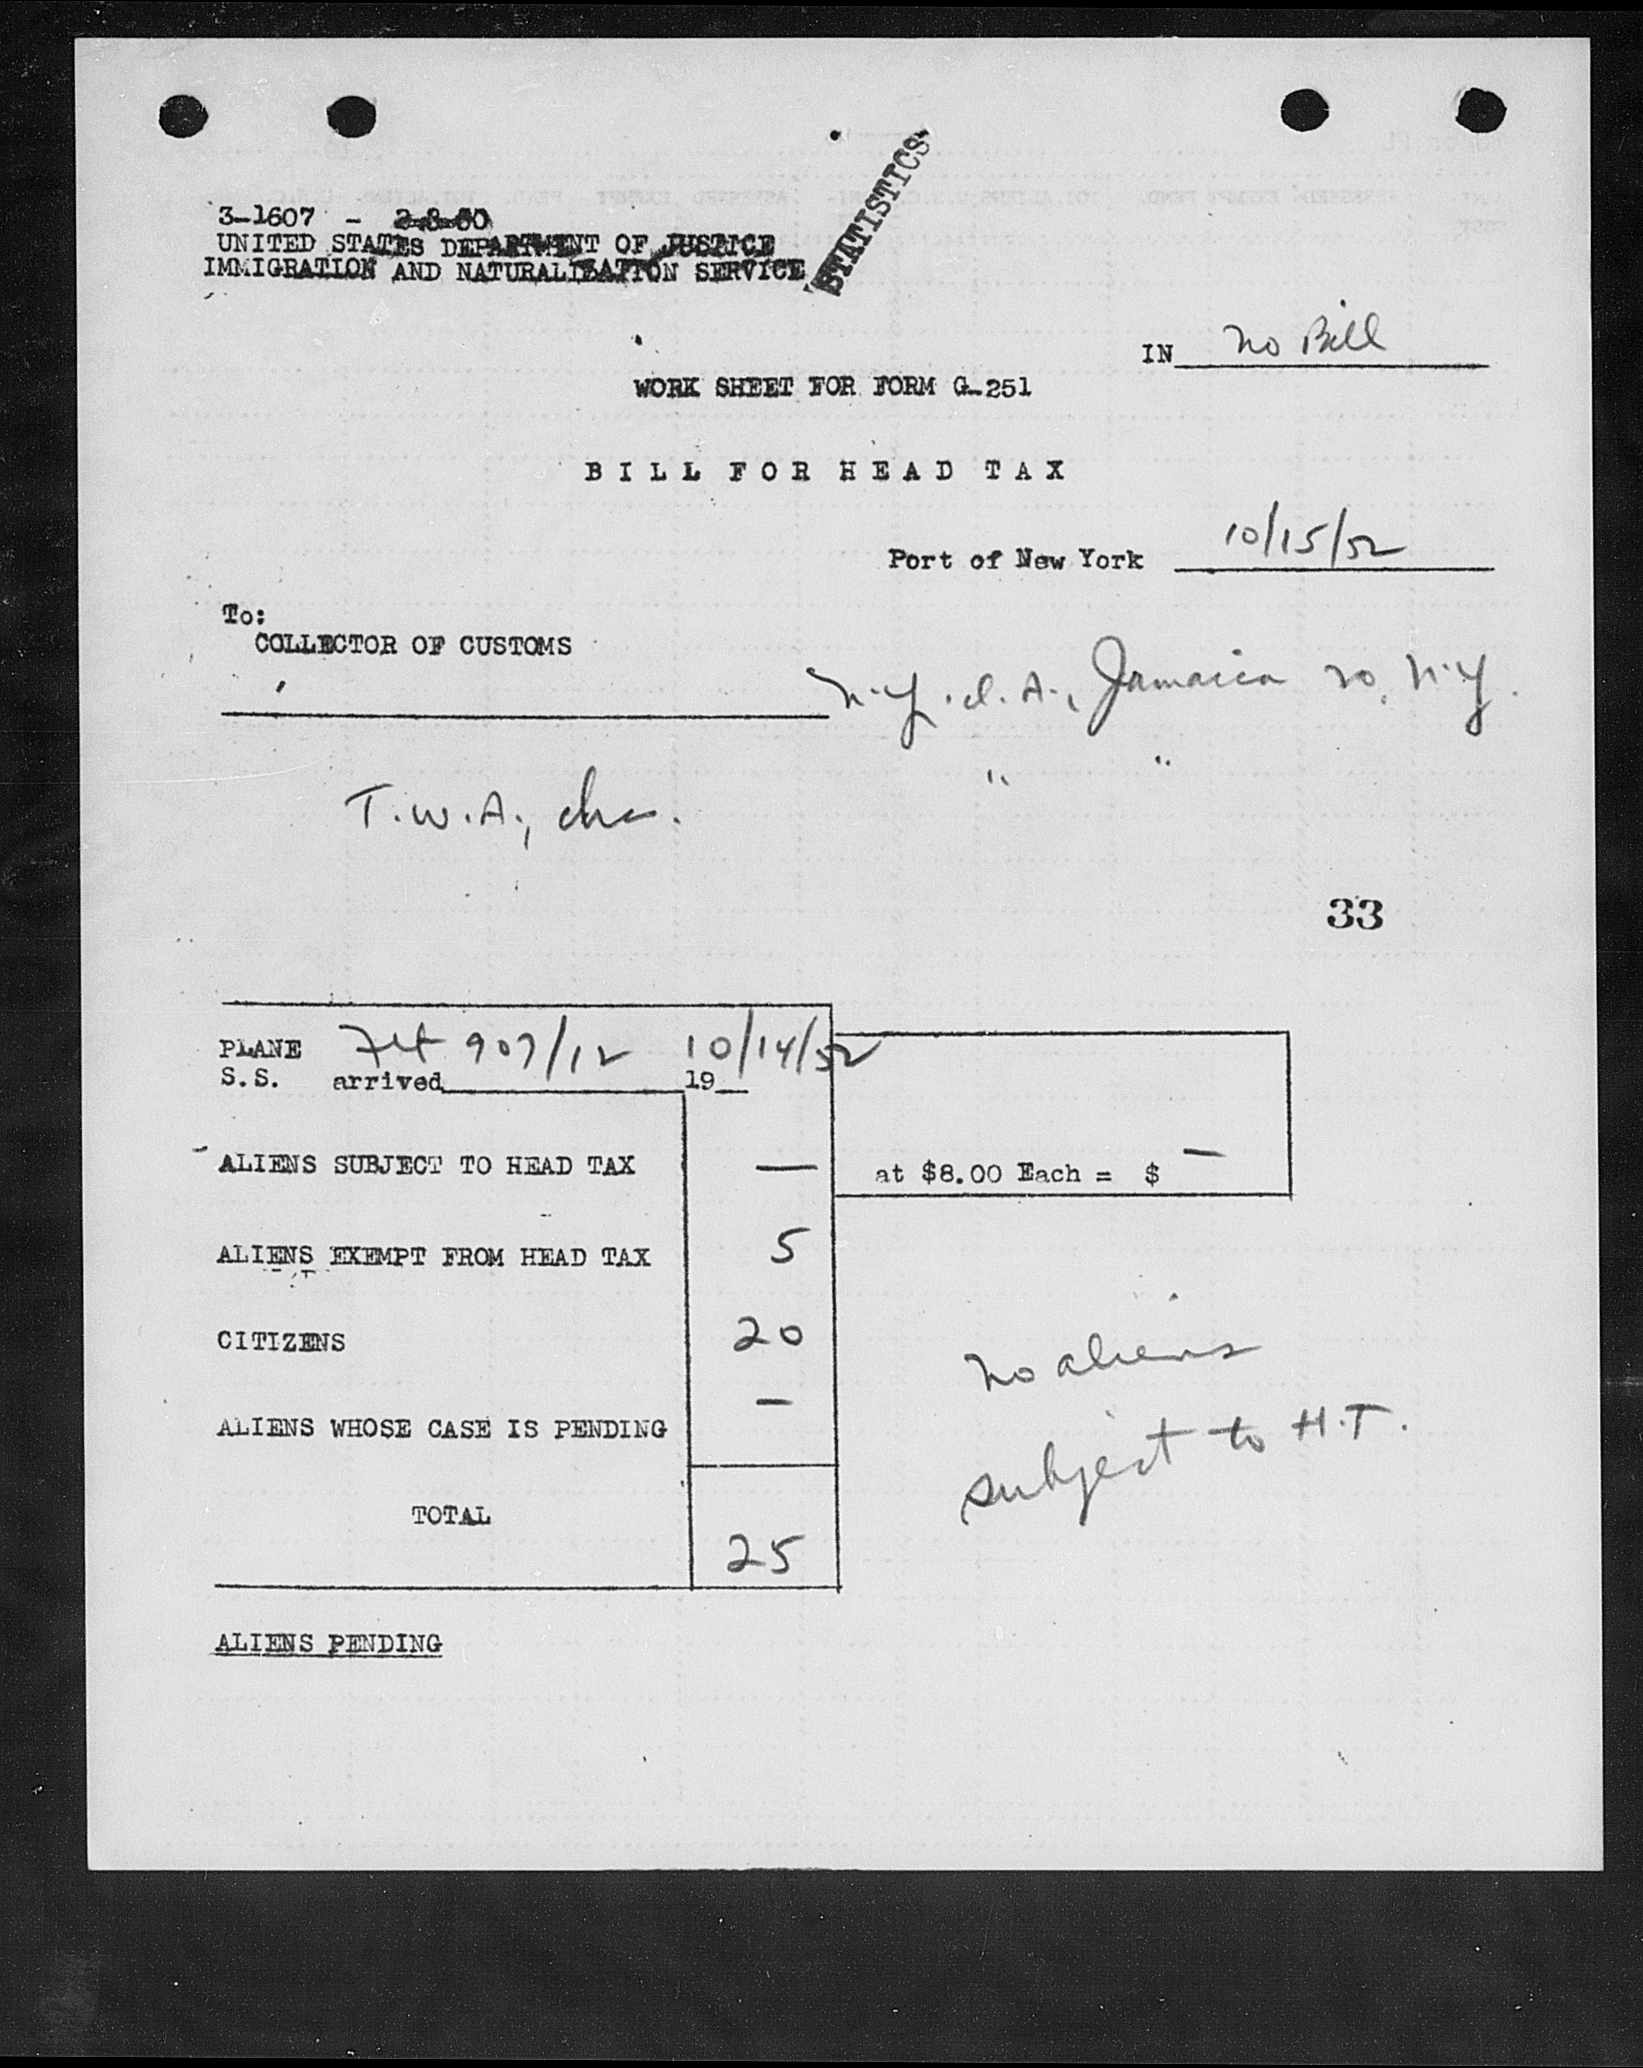 STATISTICS
3-1607 - 2-8-50
UNITED STATES DEPARTMENT OF JUSTICE
IMMIGRATION AND NATURALIZATION SERVICE
IN No Bill
WORK SHEET FOR FORM G-251
BILL FOR HEAD TAX
Port of New York 10/15/52
To:
COLLECTOR OF CUSTOMS
N.Y.I.A., Jamaica 20, N.Y.
" "
T.W.A., Inc.
33
PLANE Flt 907/12 10/14/52
S.S. arrived 19
ALIENS SUBJECT TO HEAD TAX — at $8.00 Each = $ —
ALIENS EXEMPT FROM HEAD TAX 5
CITIZENS 20
ALIENS WHOSE CASE IS PENDING —
No aliens
subject to H.T.
TOTAL
25
ALIENS PENDING